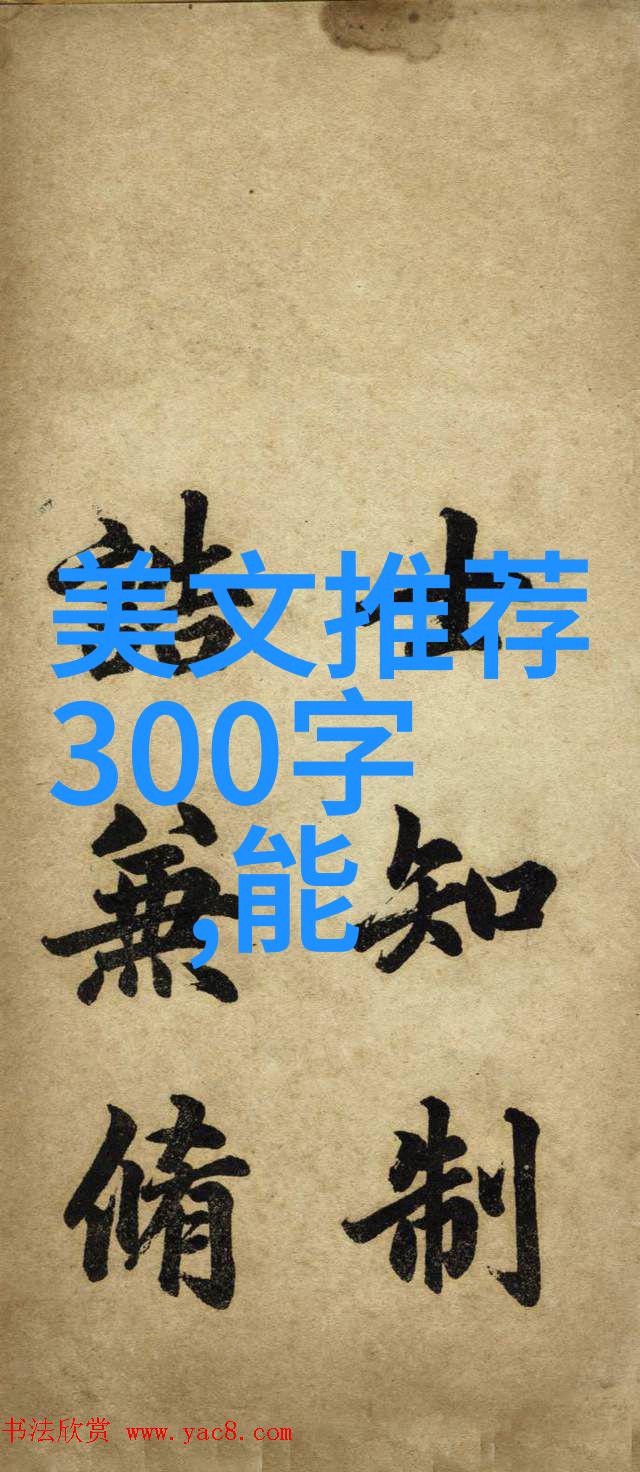 美文推荐
300字
,能
士知制
誥兼脩
书法欣赏 www.yac8.com